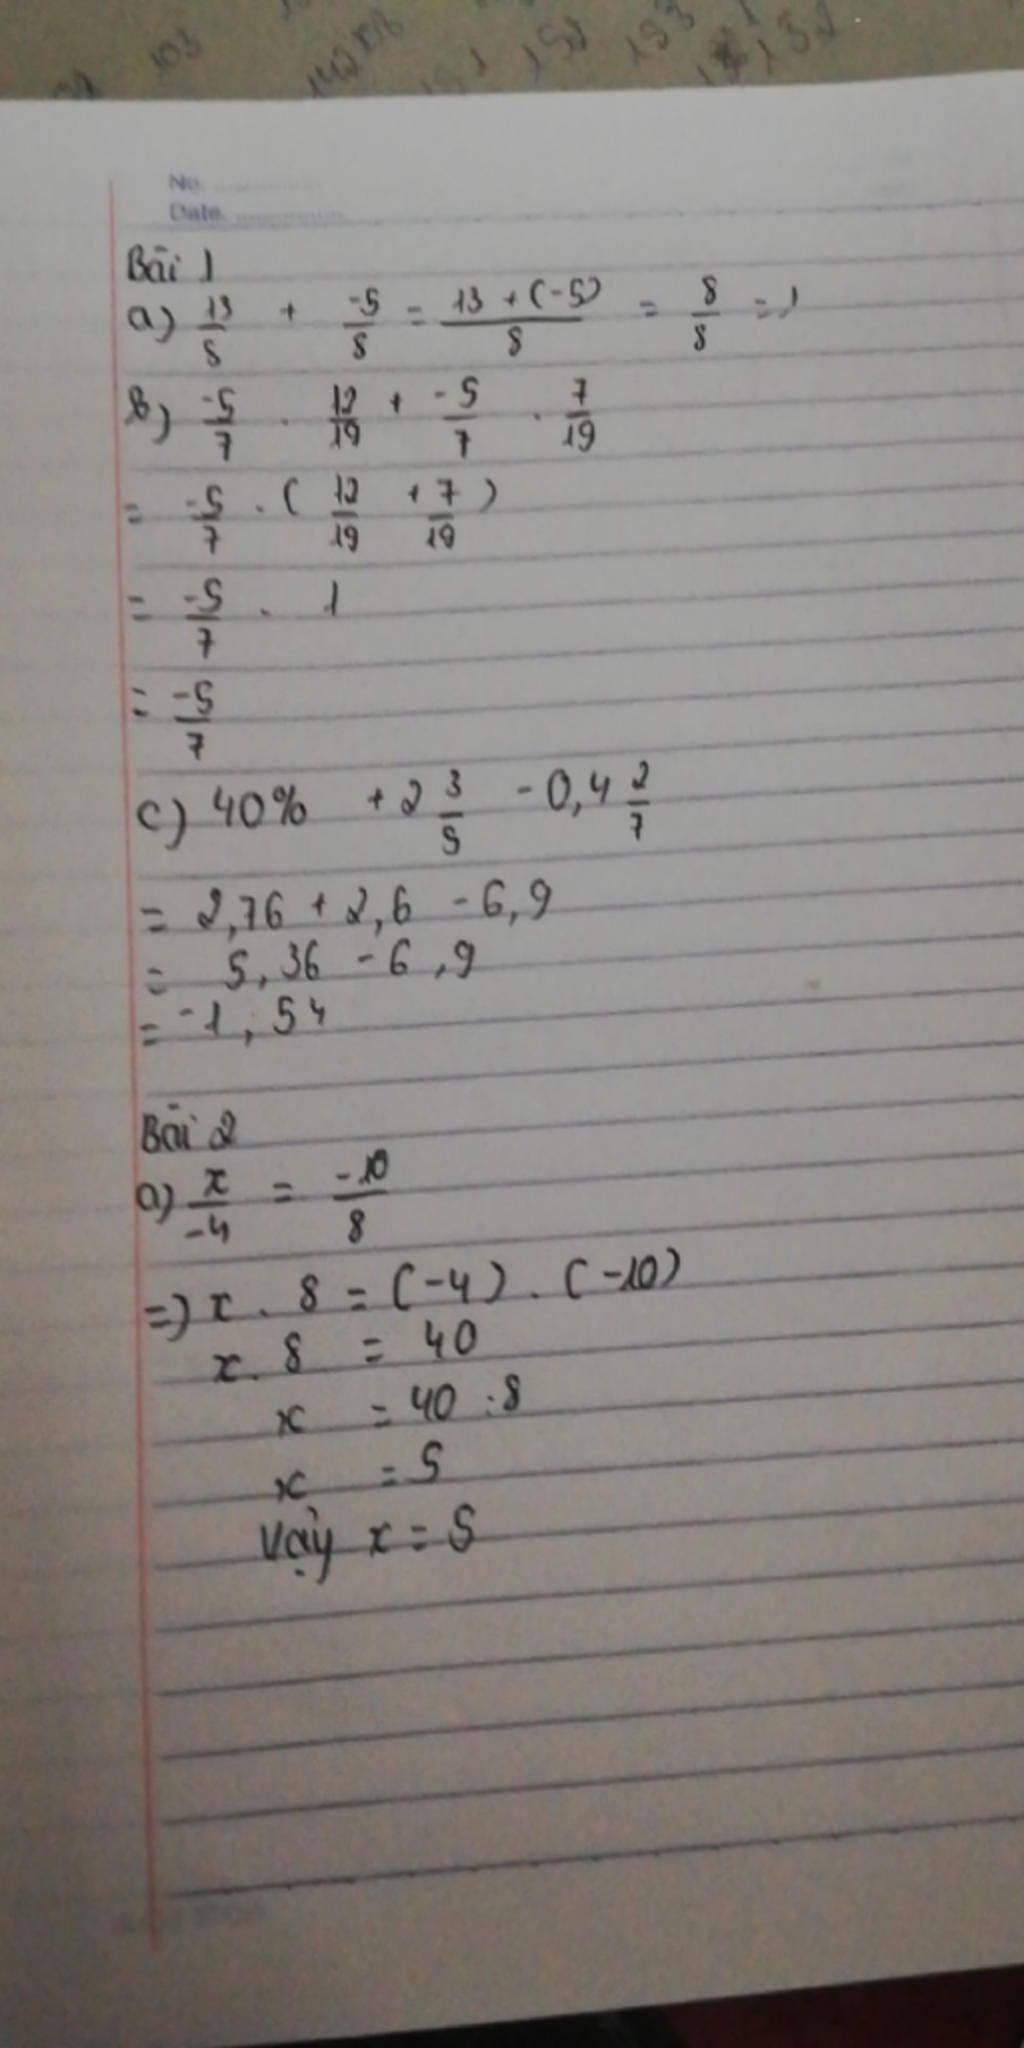 103
142
151
152
153
132
No.
Date.
Bài 1
a) 13/8 + -5/8 = 13 + (-5)/8 = 8/8 = 1
b) -5/7 . 12/19 + -5/7 . 7/19
= -5/7 . ( 12/19 + 7/19 )
= -5/7 . 1
= -5/7
c) 40% + 2 3/5 - 0,4 2/7
= 2,76 + 2,6 - 6,9
= 5,36 - 6,9
= -1,54
Bài 2
a) x/-4 = -10/8
=) x . 8 = (-4) . (-10)
x . 8 = 40
x = 40 : 8
x = 5
Vậy x = 5